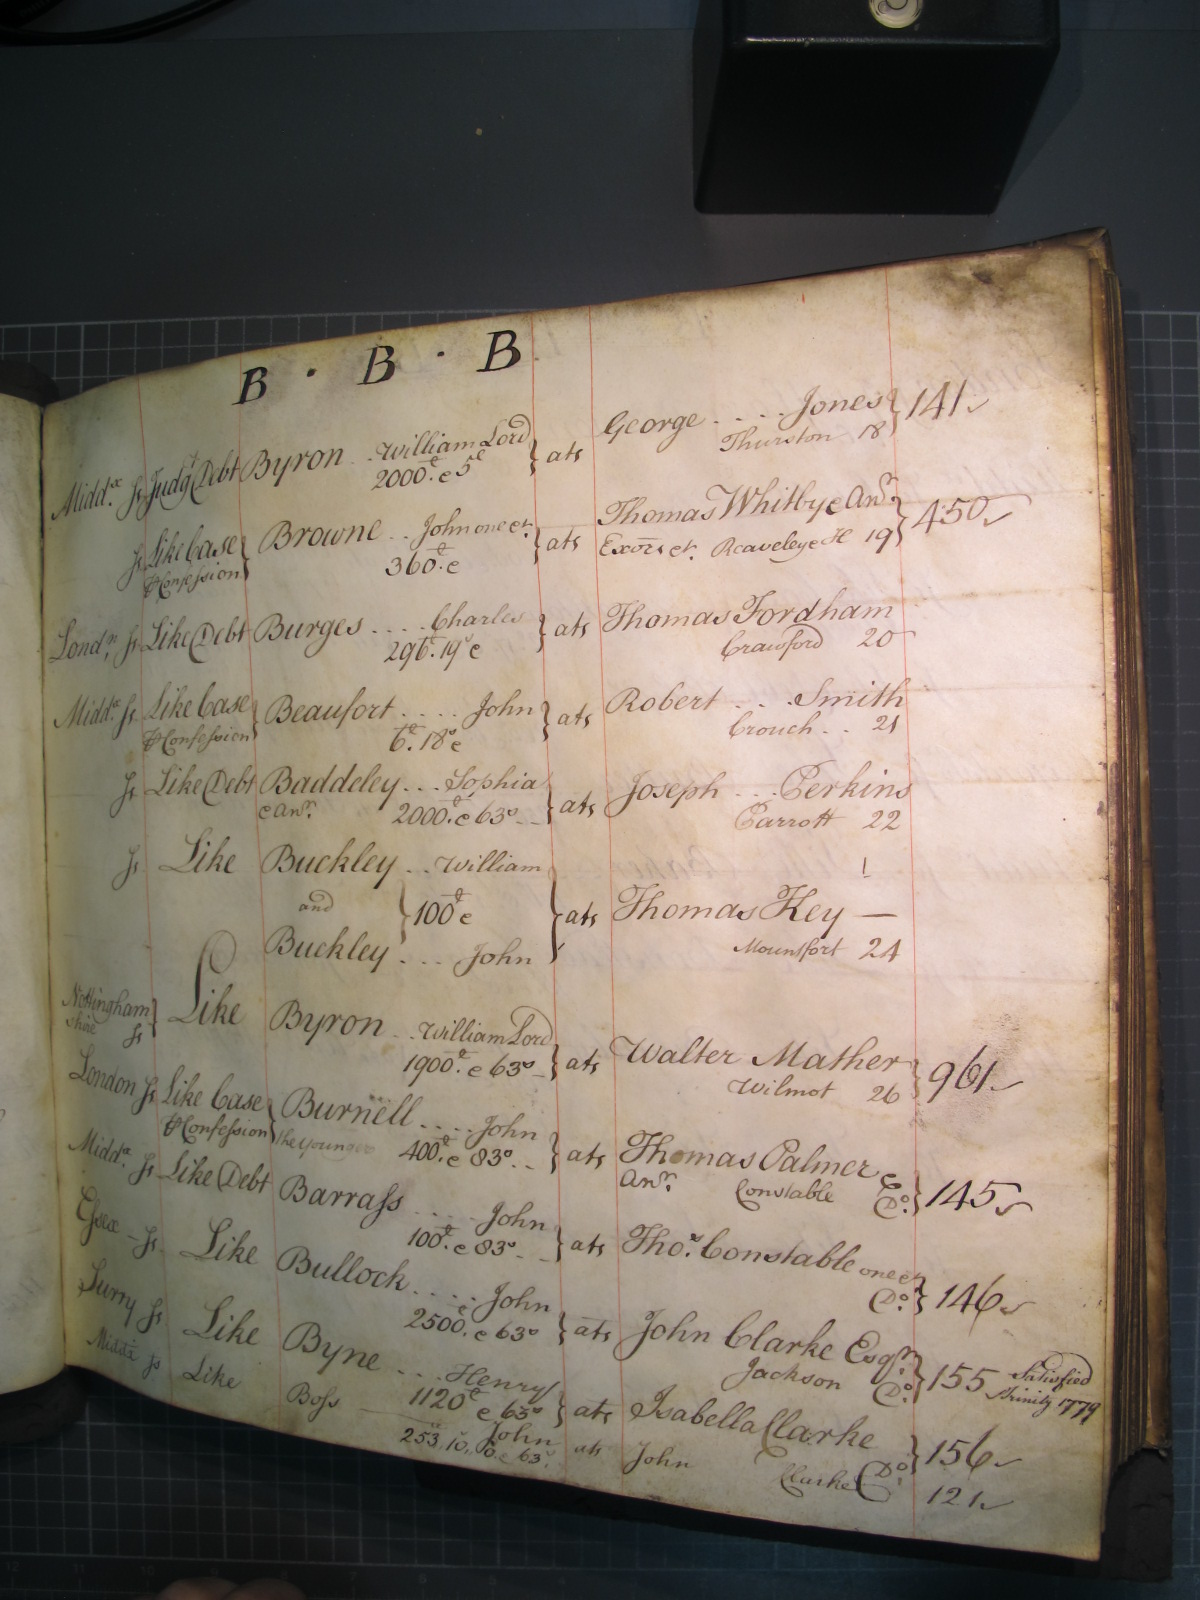 B · B · B
Midd.x Js Judg.t Debt Byron .. William Lord } ats George .... Jones } 141
2000.£ e 5£ Thurston 18
Js Like Case Browne .. John one et. } ats Thomas Whitbye An.r } 450
& Confession 360.£ e Exors et. Reaveleye H 19
Lond.n Js Like Debt Burges .... Charles } ats Thomas Fordham
296.£ 19s e Crawford 20
Midd.x Js Like Case Beaufort .... John } ats Robert ... Smith
& Confession 6.£ 18s e Crouch .. 21
Js Like Debt Baddeley ... Sophia } ats Joseph ... Perkins
e an.r 2000.£ e 63s Parrott 22
Js Like Buckley .. William
and } 100£ e } ats Thomas Key —
Buckley ... John Mounsfort 24
Nottingham shire Js } Like Byron .. William Lord } ats Walter Mather } 961
1900.£ e 63s Wilmot 26
London Js Like Case Burnell .... John } ats Thomas Palmer e } 145
& Confession the younger 400.£ e 83s An.r Constable D.o
Midd.x Js Like Debt Barrass .... John } ats Tho.s Constable one et } 146
100.£ e 83s D.o
Essex Js Like Bullock .... John } ats John Clarke Esq.r } 155 Satisfied
2500.£ e 63s Jackson D.o Trinity 1779
Surry Js Like Byne ... Henry } ats Isabella Clarke } 156
1120£ e 63s D.o
Midd.x Js Like Boss John ats John Clarke 121
253.10 e 63s D.o